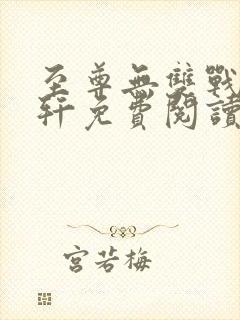 至尊無雙戰
軒免費閱讀
宮若梅